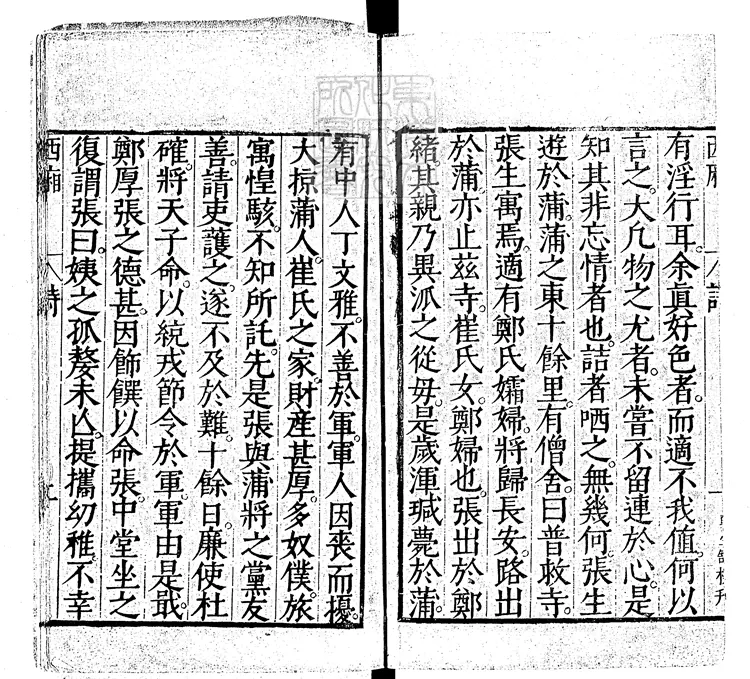 有淫行耳。余眞好色者。而適不我值。何以
言之。大凡物之尤者。未嘗不留連於心。是
知其非忘情者也。詰者哂之。無幾何。張生
遊於蒲。蒲之東十餘里。有僧舍。曰普救寺。
張生寓焉。適有鄭氏孀婦。將歸長安。路出
於蒲。亦止茲寺。崔氏女。鄭婦也。張出於鄭
緒。其親乃異派之從母。是歲渾瑊薨於蒲。
有中人丁文雅。不善於軍。軍人因喪而擾。
大掠蒲人。崔氏之家。財産甚厚。多奴僕。旅
寓惶駭。不知所託。先是張與蒲將之黨友
善。請吏護之。遂不及於難。十餘日。廉使杜
確。將天子命。以統戎節。令於軍。軍由是戢。
鄭厚張之德甚。因飾饌以命張。中堂坐之。
復謂張曰。姨之孤嫠未亾。提攜幼稚。不幸
西廂
詩